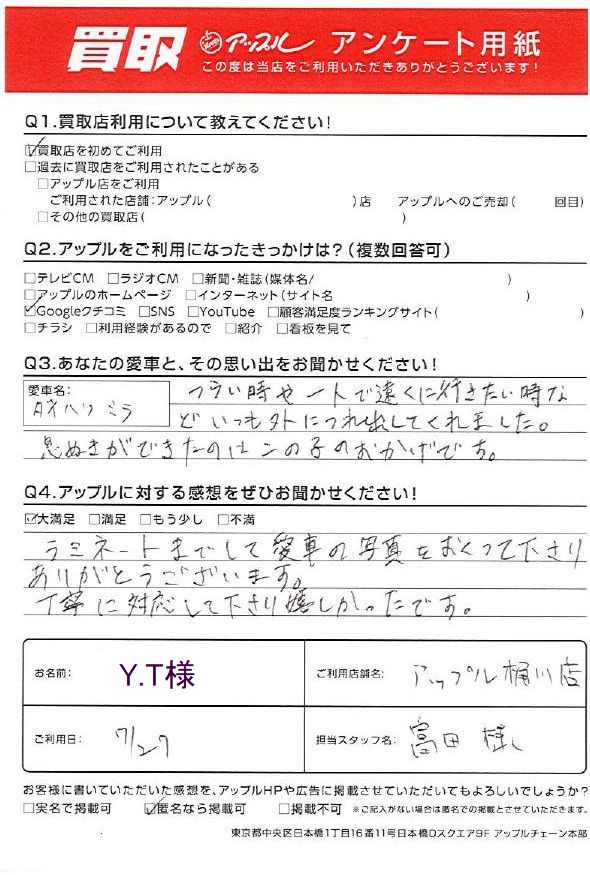 買取 アップル アンケート用紙
この度は当店をご利用いただきありがとうございます!
Q1.買取店利用について教えてください!
☑買取店を初めてご利用
□過去に買取店をご利用されたことがある
□アップル店をご利用
ご利用された店舗:アップル( )店 アップルへのご売却( 回目)
□その他の買取店( )
Q2.アップルをご利用になったきっかけは?(複数回答可)
□テレビCM □ラジオCM □新聞・雑誌(媒体名/ )
□アップルのホームページ □インターネット(サイト名 )
☑Googleクチコミ □SNS □YouTube □顧客満足度ランキングサイト( )
□チラシ □利用経験があるので □紹介 □看板を見て
Q3.あなたの愛車と、その思い出をお聞かせください!
愛車名:
ダイハツ ミラ
つらい時や一人で遠くに行きたい時な
どいつも外につれ出してくれました。
息ぬきができたのはこの子のおかげです。
Q4.アップルに対する感想をぜひお聞かせください!
☑大満足 □満足 □もう少し □不満
ラミネートまでして愛車の写真をおくって下さり
ありがとうございます。
丁寧に対応して下さり嬉しかったです。
お名前: Y.T様 ご利用店舗名: アップル桶川店
ご利用日: 7/27 担当スタッフ名: 富田 様
お客様に書いていただいた感想を、アップルHPや広告に掲載させていただいてもよろしいでしょうか?
□実名で掲載可 ☑匿名なら掲載可 □掲載不可 ※ご記入がない場合は匿名での掲載とさせていただきます。
東京都中央区日本橋1丁目16番11号日本橋Dスクエア9F アップルチェーン本部